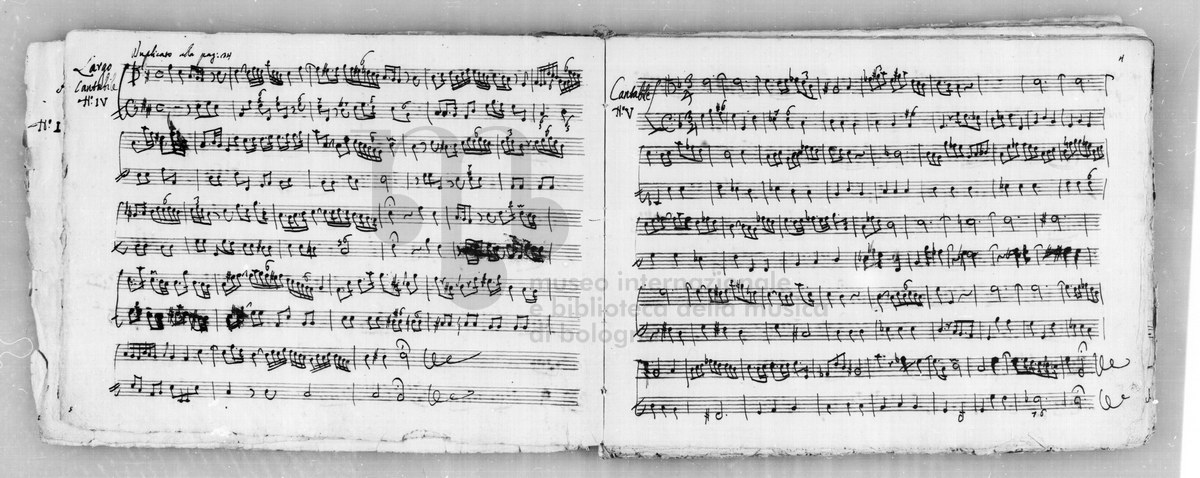 Duplicato alla pag: 134
Largo
Cantabile
N.º IV
N.º I
Cantabile
N.º V
museo internazionale
e biblioteca della musica
di bologna